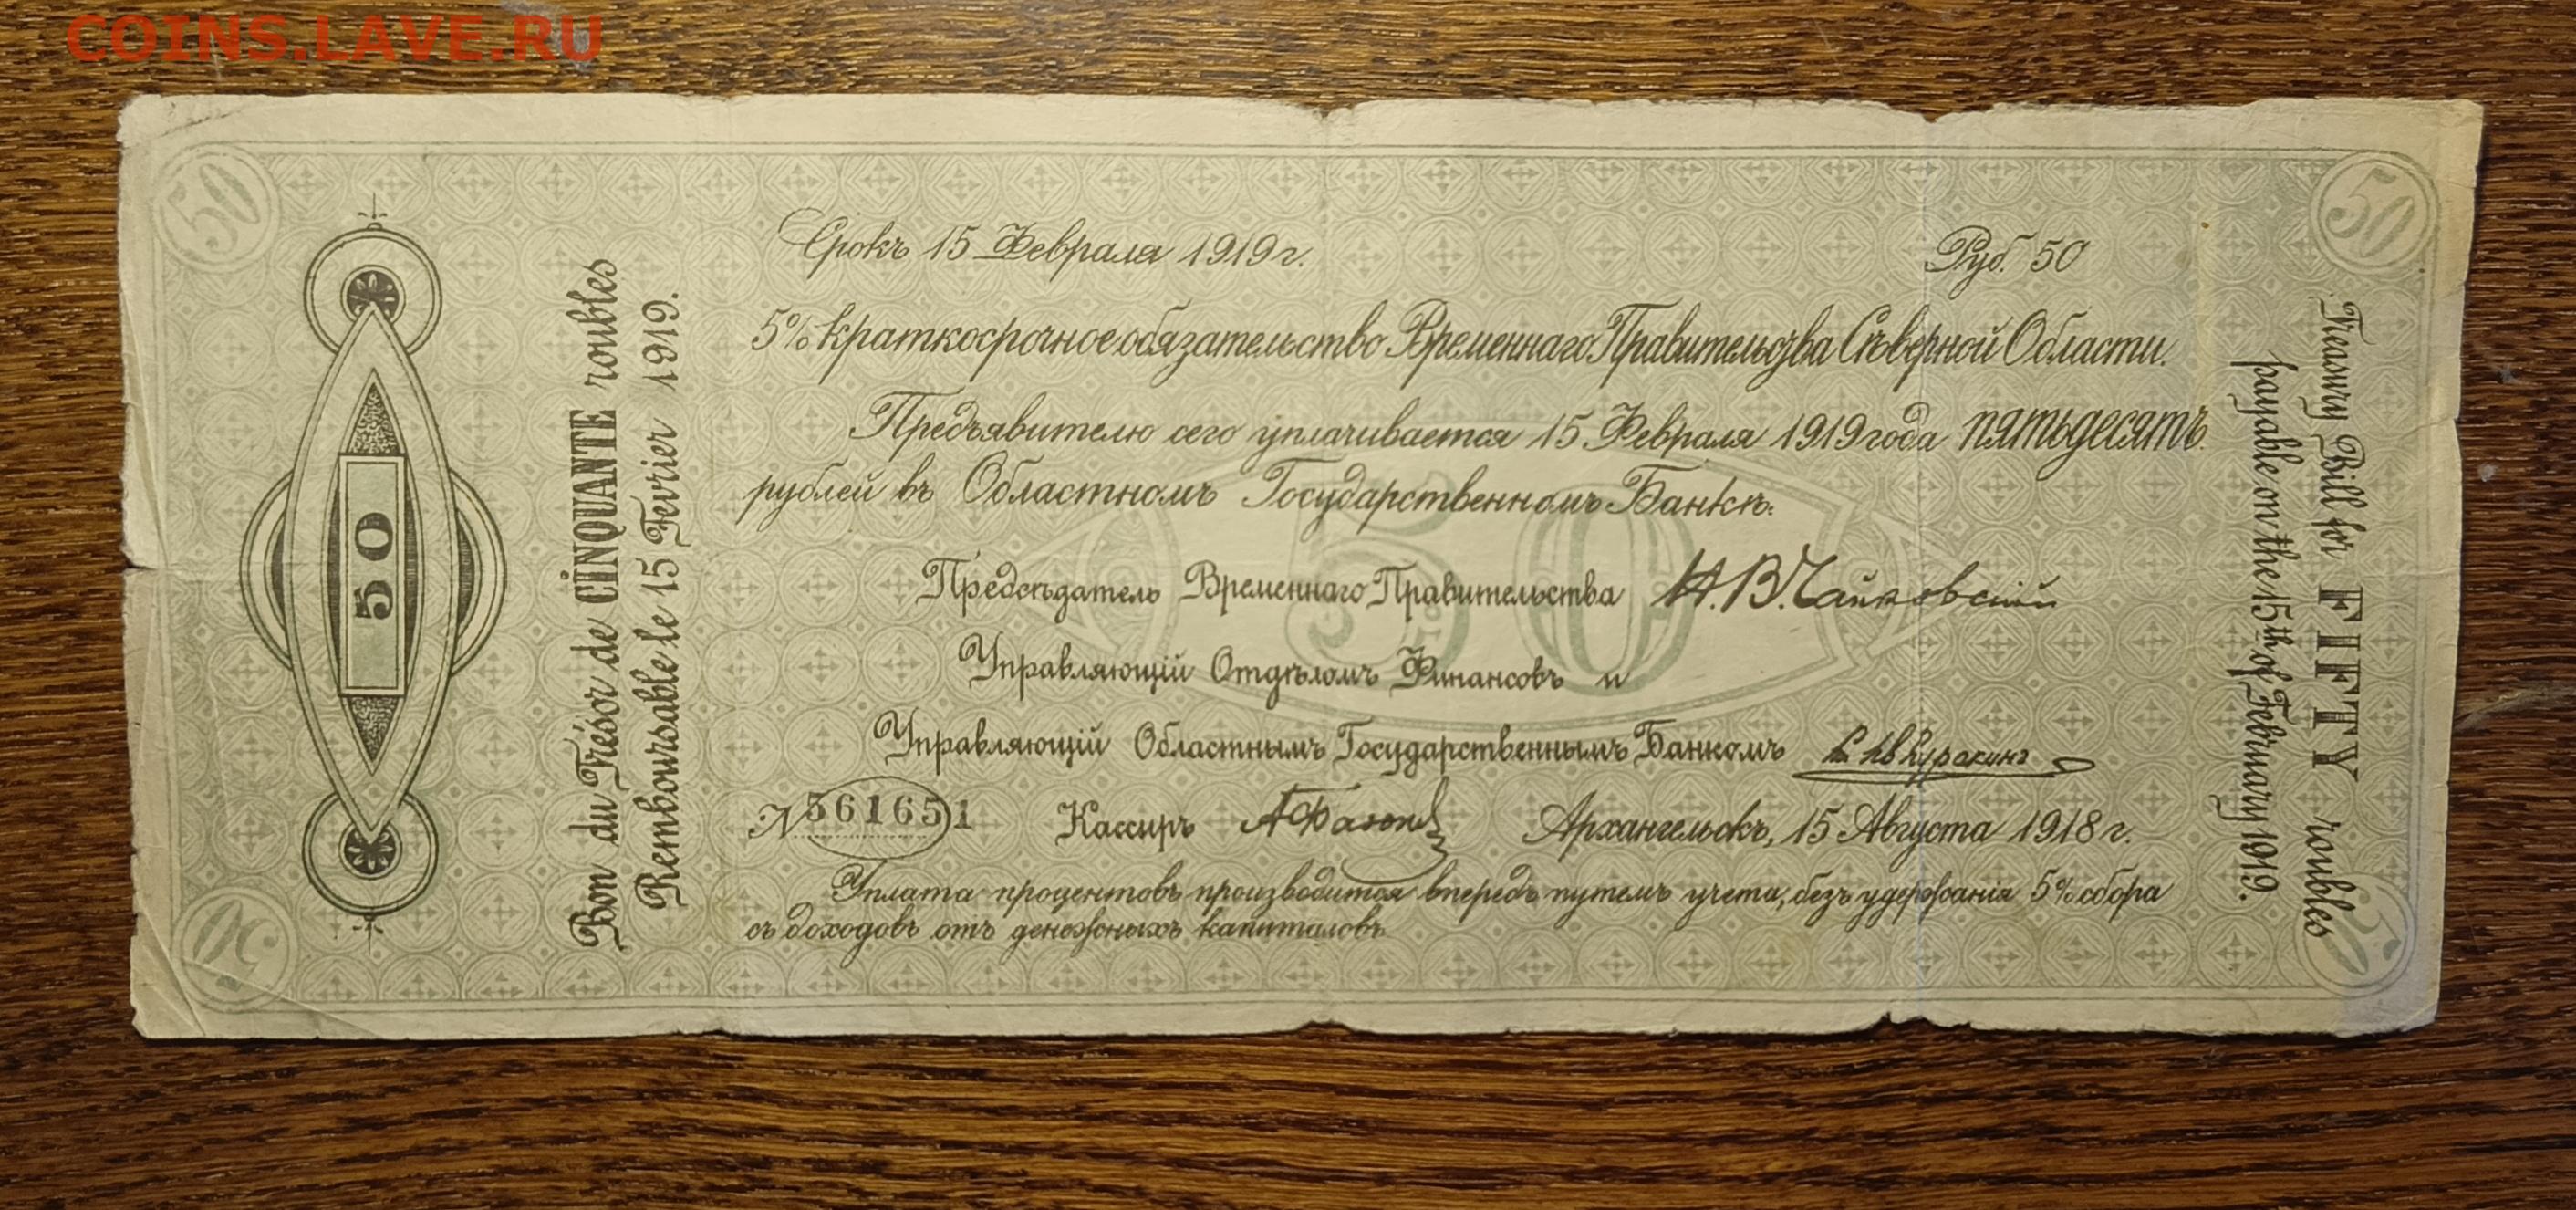 COINS.LAVE.RU
50
50
Срокъ 15 Февраля 1919 г.
Руб. 50
5% краткосрочное обязательство Временнаго Правительства Сѣверной Области.
Предъявителю сего уплачивается 15 Февраля 1919 года пятьдесятъ
рублей въ Областномъ Государственномъ Банкѣ.
50
Предсѣдатель Временнаго Правительства Н.В.Чайковскій
Управляющій Отдѣломъ Финансовъ и
Управляющій Областнымъ Государственнымъ Банкомъ
№ 561651 Кассиръ Архангельскъ, 15 Августа 1918 г.
Уплата процентовъ производится впередъ путемъ учета, безъ удержанія 5% сбора
съ доходовъ отъ денежныхъ капиталовъ
50
Bon du Trésor de CINQUANTE roubles
Remboursable le 15 Fevrier 1919.
Treasury Bill for FIFTY roubles
payable on the 15th of February 1919.
50
50